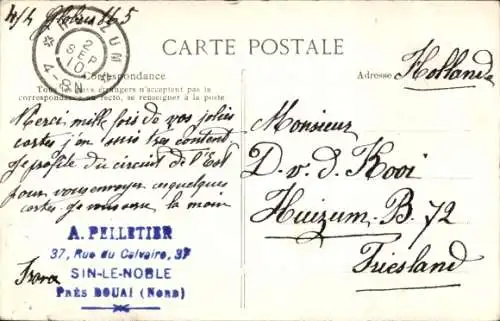 HUIZUM
2 SEP 10
4-8N
CARTE POSTALE
Correspondance
Tous les pays étrangers n'acceptent pas la
correspondance au recto, se renseigner à la poste
Adresse Hollande
Merci mille fois de vos jolies
cartes j'en suis très content
Je profite du circuit de l'Est
pour vous envoyer quelques
cartes Je vous serre la main
A. PELLETIER
37, Rue du Calvaire, 37
SIN-LE-NOBLE
PRÈS DOUAI (NORD)
Monsieur
D. v. d. Kooi
Huizum. B. 72
Friesland